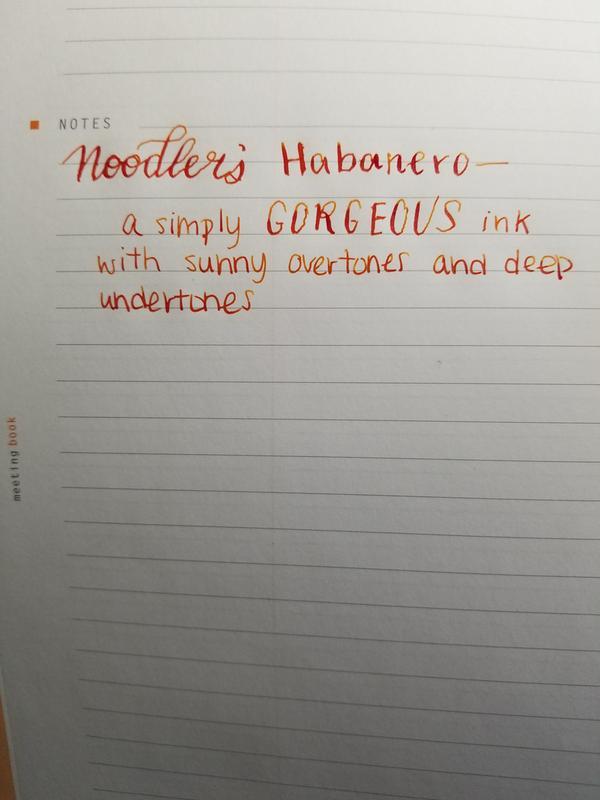 NOTES
Noodler's Habanero—
a simply GORGEOUS ink
with sunny overtones and deep
undertones
meeting book